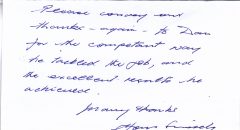 Please convey our
thanks - again - to Dan
for the competent way
he tackled the job, and
the excellent results he
achieved.
Many thanks